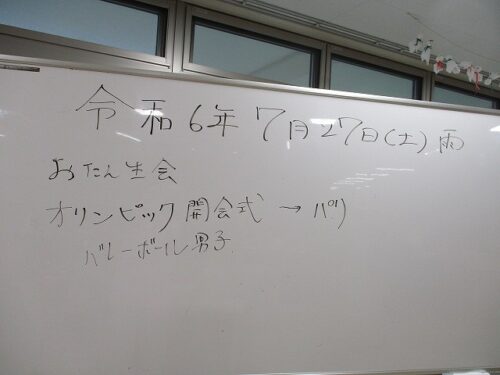 令和6年7月27日(土)雨
おたん生会
オリンピック開会式→パリ
バレーボール男子